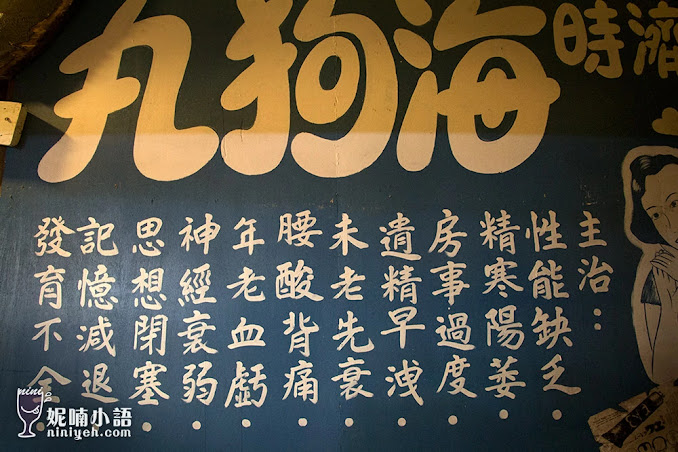 濟時
海狗丸
主治：
性能缺乏．
精寒陽萎．
房事過度．
遺精早洩．
未老先衰．
腰酸背痛．
年老血虧．
神經衰弱．
思想閉塞．
記憶減退．
發育不全．
nini
妮喃小語
niniyeh.com